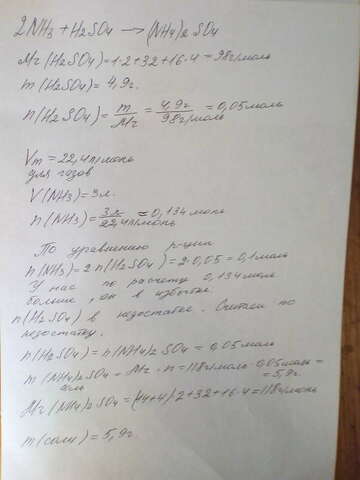 2NH3 + H2SO4 → (NH4)2SO4
Mr(H2SO4) = 1·2+32+16·4 = 98г/моль
m(H2SO4) = 4,9г.
n(H2SO4) = m/Mr = 4,9г/98г/моль = 0,05моль
Vm = 22,4л/моль
для газов
V(NH3) = 3л.
n(NH3) = 3л/22,4л/моль = 0,134моль
По уравнению р-ции
n(NH3) = 2·n(H2SO4) = 2·0,05 = 0,1моль
У нас по расчету 0,134моль
больше, он в избытке.
n(H2SO4) в недостатке. Считаем по
недостатку.
n(H2SO4) = n(NH4)2SO4 = 0,05моль
m(NH4)2SO4 = Mr·n = 118г/моль·0,05моль =
соль = 5,9г.
Mr(NH4)2SO4 = (14+4)·2+32+16·4 = 118г/моль
m(соли) = 5,9г.